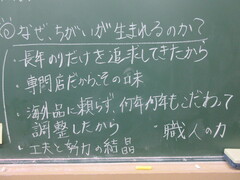 ◎なぜ、ちがいが生まれるのか？
・長年のりだけを追求してきたから
・専門店だから、その味
・海外品に頼らず、何年何年もこだわって
調整したから 職人の力
・工夫と努力の結晶